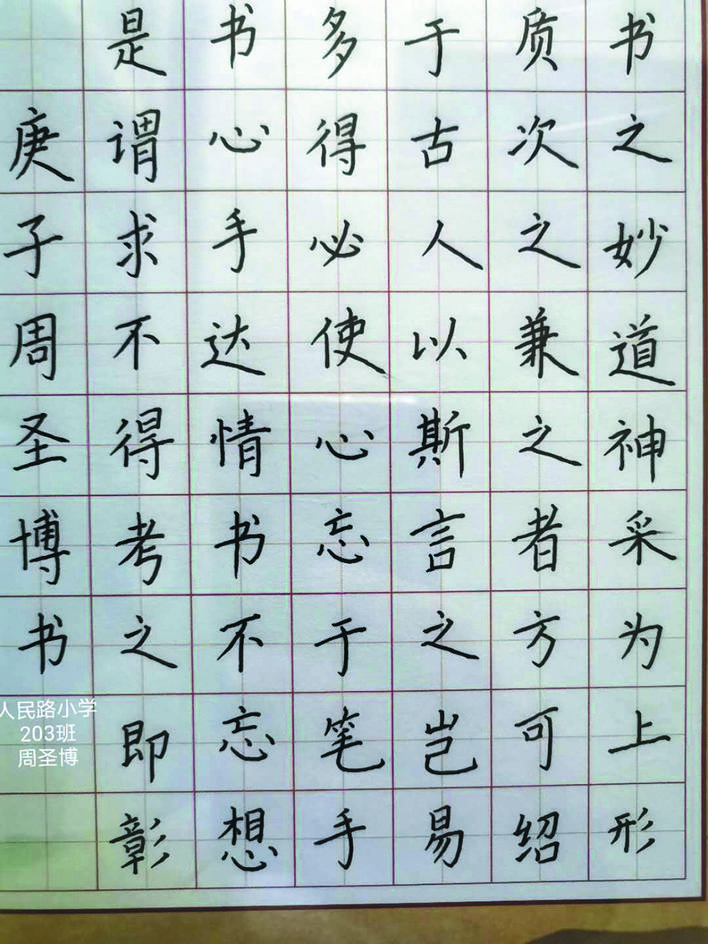 书之妙道神采为上形
质次之兼之者方可绍
于古人以斯言之岂易
多得必使心忘于笔手
书心手达情书不忘想
是谓求不得考之即彰
庚子周圣博书
人民路小学
203班
周圣博